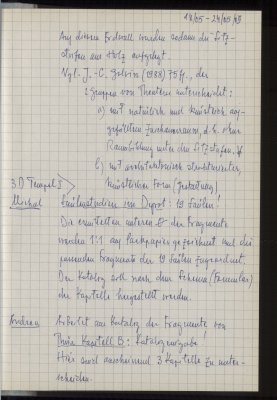 18/05 – 24/05/03
Auf diesem Erdwall wurden sodann die Sitz-
stufen aus Holz aufgelegt.
Vgl. J.-C. Golvin (1988) 75 ff., der
2 Gruppen von Theatern unterscheidet:
a) mit natürlich und künstlich auf-
gefülltem Zuschauerraum, d.h. ohne
Raumbildung unter den Sitzstufen.
b) mit architektonisch strukturierter,
künstlicher Form (
3.) Tempel I
Michael Säulenstudien im Depot: 19 Säulen!
Die ermittelten unteren Ø der Fragmente
werden 1:1 auf Packpapier gezeichnet und die
passenden Fragmente den 19 Säulen zugeordnet.
Der Katalog soll nach dem Schema (Formular)
der Kapitelle hergestellt werden.
Andrea Arbeitet am Katalog der Fragmente von
Kapitell B: Katalogausgabe
Hier sind anscheinend 3 Kapitelle zu unter-
scheiden.